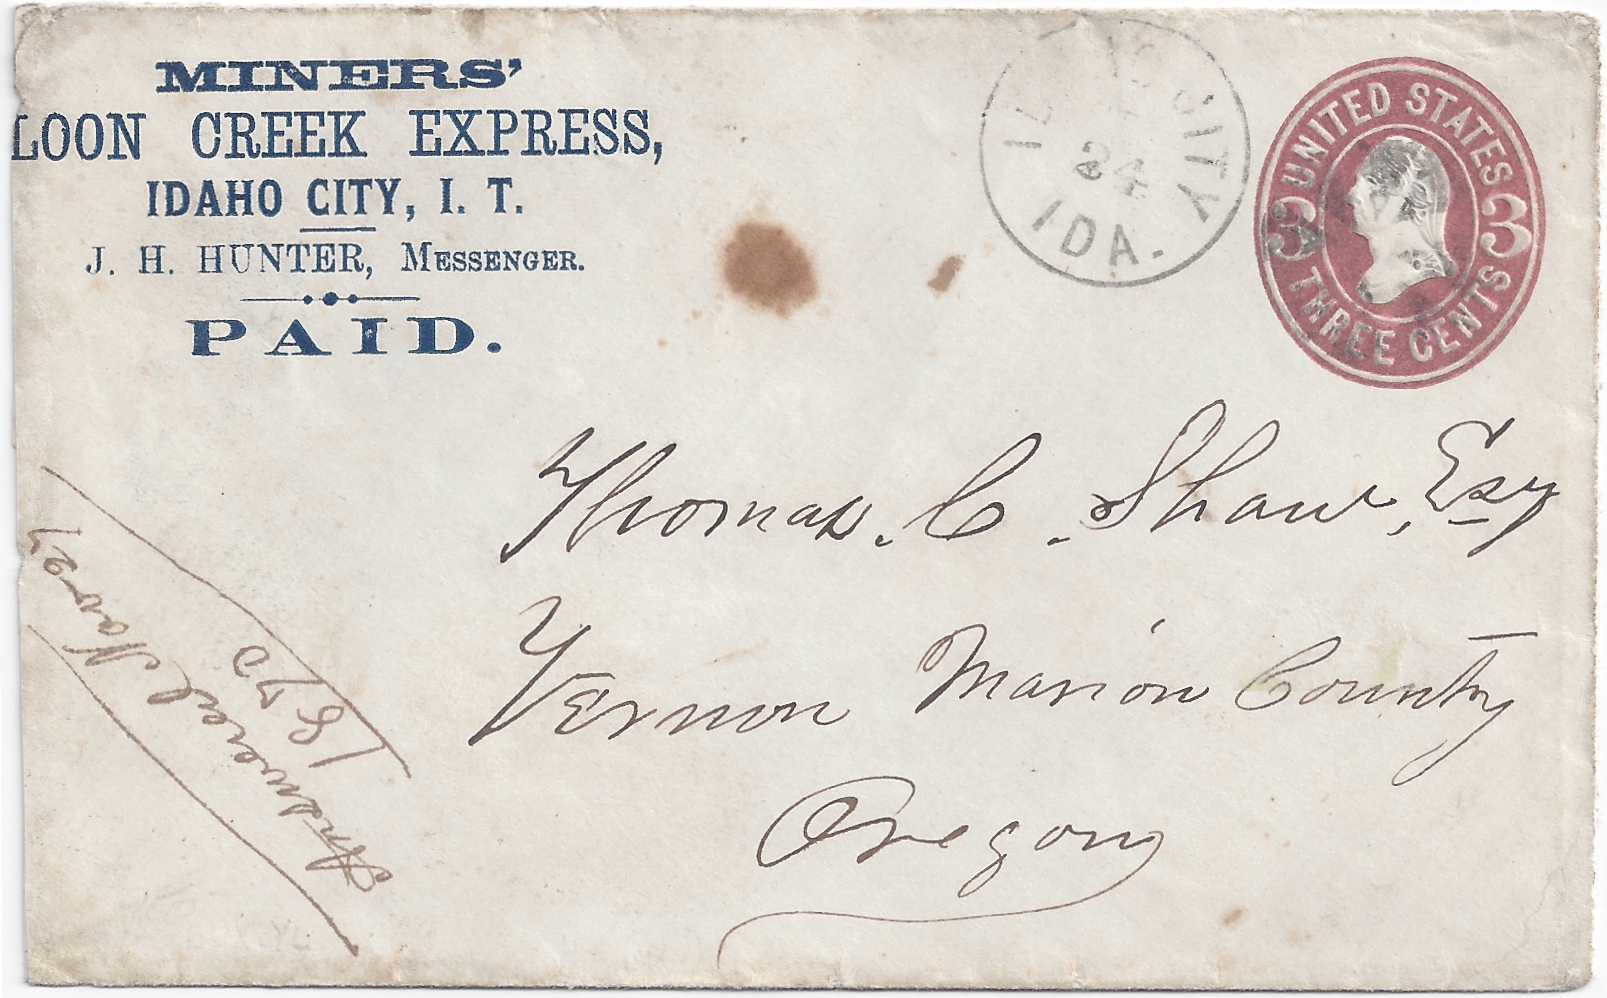 MINERS'
LOON CREEK EXPRESS,
IDAHO CITY, I. T.
J. H. HUNTER, MESSENGER.
PAID.
CITY
24
IDA.
UNITED STATES
3 3
THREE CENTS
Thomas. C. Shaw, Esq
Vernon Marion County
Oregon
Answered Nov 27
1870